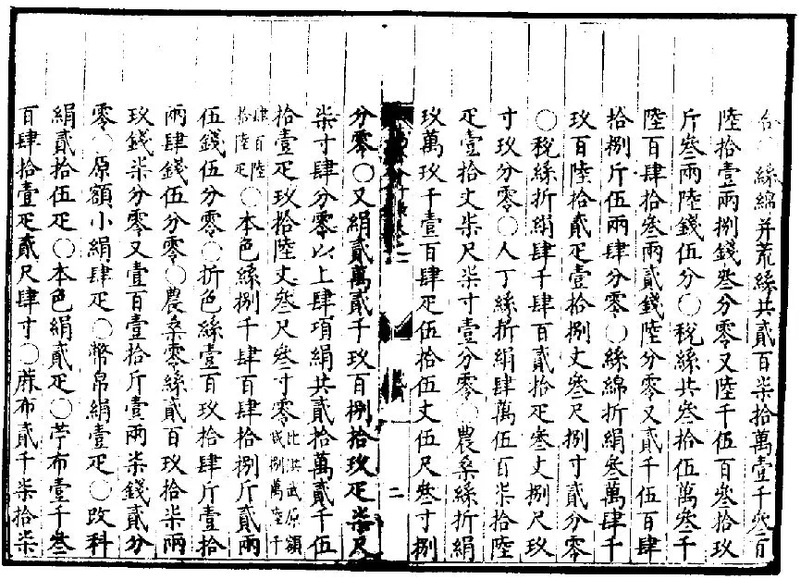 合〇絲綿并荒絲共貳百柒拾萬壹千叄百
陸拾壹兩捌錢叄分零又陸千伍百叄拾玖
斤叄兩陸錢伍分〇稅絲共叄拾伍萬叄千
陸百肆拾叄兩貳錢陸分零又貳千伍百肆
拾捌斤伍兩肆分零〇絲綿折絹叄萬肆千
玖百陸拾貳疋壹拾捌丈叄尺捌寸貳分零
〇稅絲折絹肆千肆百貳拾疋叄丈捌尺玖
寸玖分零〇人丁絲折絹肆萬伍百柒拾陸
疋壹拾丈柒尺柒寸壹分零〇農桑絲折絹
玖萬玖千壹百肆疋伍拾伍丈伍尺叄寸捌
二
分零〇又絹貳萬貳千玖百捌拾玖疋柒尺
柒寸肆分零以上肆項絹共貳拾萬貳千伍
拾壹疋玖拾陸丈叄尺叄寸零比洪武原額
減捌萬陸千
肆百陸
拾陸疋〇本色絲捌千肆百肆拾捌斤貳兩
伍錢伍分零〇折色絲壹百玖拾肆斤壹拾
兩肆錢伍分零〇農桑零絲貳百玖拾柒兩
玖錢柒分零又壹百壹拾斤壹兩柒錢貳分
零〇原額小絹肆疋〇幣帛絹壹疋〇改科
絹貳拾伍疋〇本色絹貳疋〇苧布壹千叄
百肆拾壹疋貳尺肆寸〇蔴布貳千柒拾柒